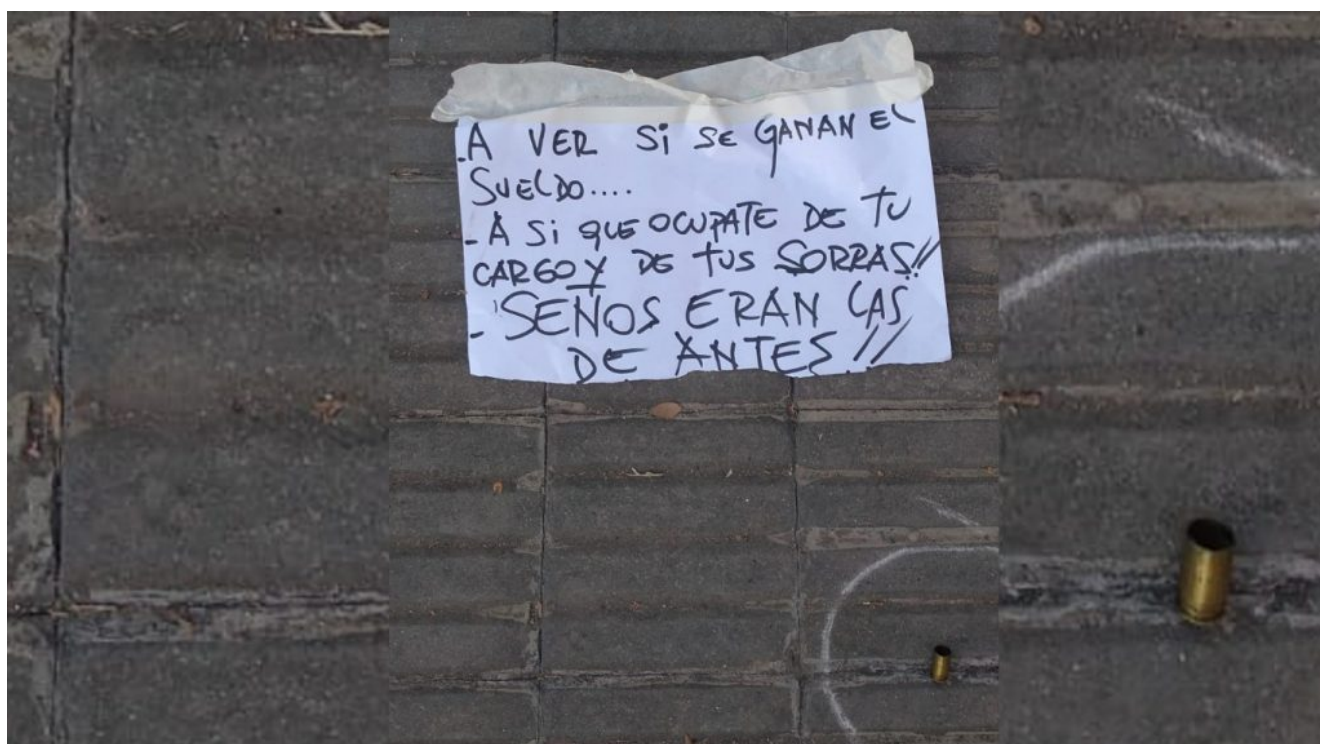 -A VER Si SE GANAN EL
SUELDO....
-A Si QUE OCUPATE DE TU
CARGO Y DE TUS SORRAS!!
-'SEÑOS ERAN LAS
DE ANTES!!